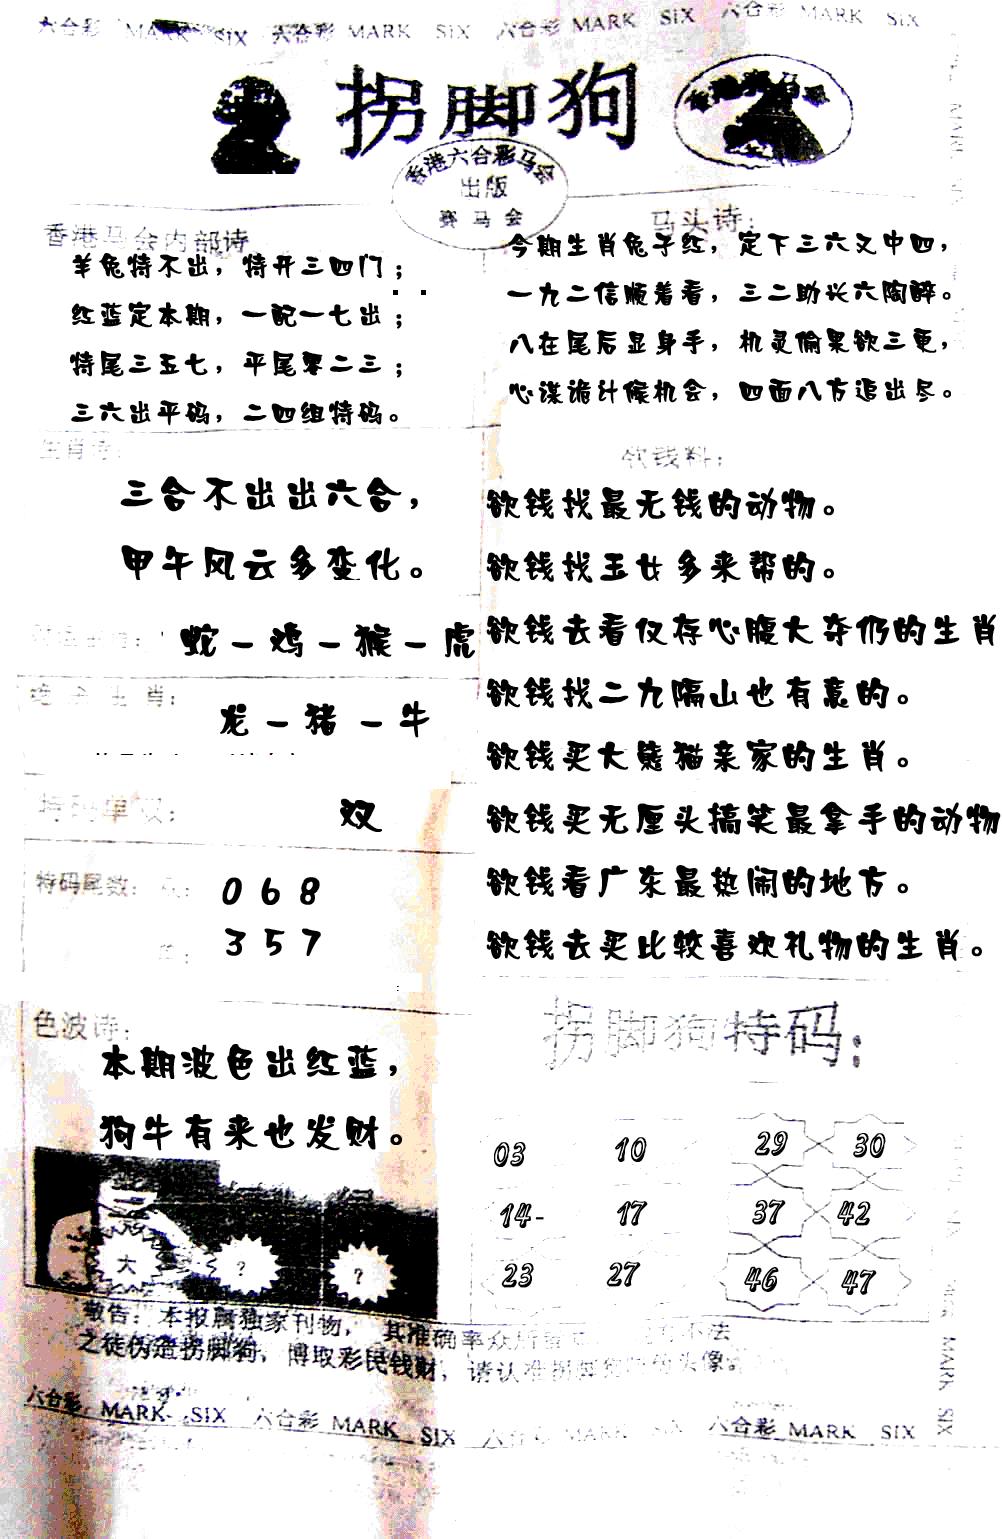 六合彩 MARK SIX 六合彩 MARK SIX 六合彩 MARK SIX 六合彩 MARK SIX
拐脚狗
香港六合彩马会
出版
赛马会
香港马会内部诗
羊兔特不出，特开三四门；
红蓝定本期，一配一七出；
特尾三五七，平尾零二三；
三六出平码，二四组特码。
马头诗：
今期生肖兔子红，定下三六又中四，
一九二信顺着看，三二助长六陶醉。
八在尾后显身手，机灵偷果欲三更，
心谋诡计候机会，四面八方追出尽。
生肖诗：
三合不出出六合，
甲午风云多变化。
蛇－鸡－猴－虎
生肖：
龙－猪－牛
特码单双：
双
特码尾数：
0 6 8
3 5 7
色波诗：
本期波色出红蓝，
狗牛有来也发财。
大
?
?
欲钱料：
欲钱找最无钱的动物。
欲钱找玉女多来帮的。
欲钱去看仅存心腹大夺仍的生肖
欲钱找二九隔山也有意的。
欲钱买大熊猫亲家的生肖。
欲钱买无厘头搞笑最拿手的动物
欲钱看广东最热闹的地方。
欲钱去买比较喜欢礼物的生肖。
拐脚狗特码：
03 10 29 30
14- 17 37 42
23 27 46 47
敬告：本报属独家刊物，其准确率众所 不法
之徒伪造拐脚狗，博取彩民钱财，请认准拐脚 头像
六合彩 MARK SIX 六合彩 MARK SIX 六合彩 MARK SIX 六合彩 MARK SIX
MARK SIX